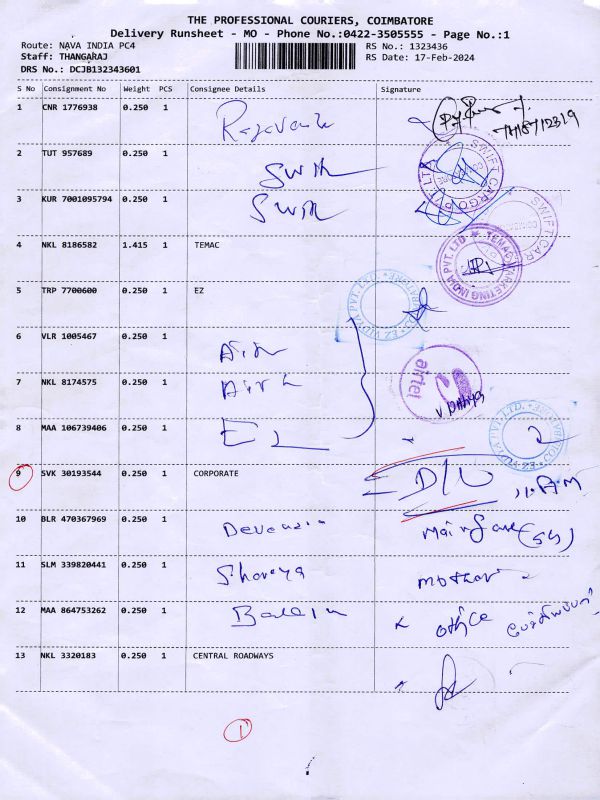 THE PROFESSIONAL COURIERS, COIMBATORE
Delivery Runsheet - MO - Phone No.:0422-3505555 - Page No.:1
Route: NAVA INDIA PC4 RS No.: 1323436
Staff: THANGARAJ RS Date: 17-Feb-2024
DRS No.: DCJB132343601
S No Consignment No Weight PCS Consignee Details Signature
1 CNR 1776938 0.250 1
2 TUT 957689 0.250 1 SWIFT CARGO PVT LTD
3 KUR 7001095794 0.250 1 SWIFT CAR
4 NKL 8186582 1.415 1 TEMAC TEMAC MARKETING INDIA PVT. LTD
5 TRP 7700600 0.250 1 EZ EZ VIDYA PVT. LTD.
6 VLR 1005467 0.250 1
7 NKL 8174575 0.250 1 airtel
8 MAA 106739406 0.250 1 EZ EZ VIDYA PVT. LTD.
9 SVK 30193544 0.250 1 CORPORATE D/L
10 BLR 470367969 0.250 1
11 SLM 339820441 0.250 1 Shoreya mother
12 MAA 864753262 0.250 1 office
13 NKL 3320183 0.250 1 CENTRAL ROADWAYS
1